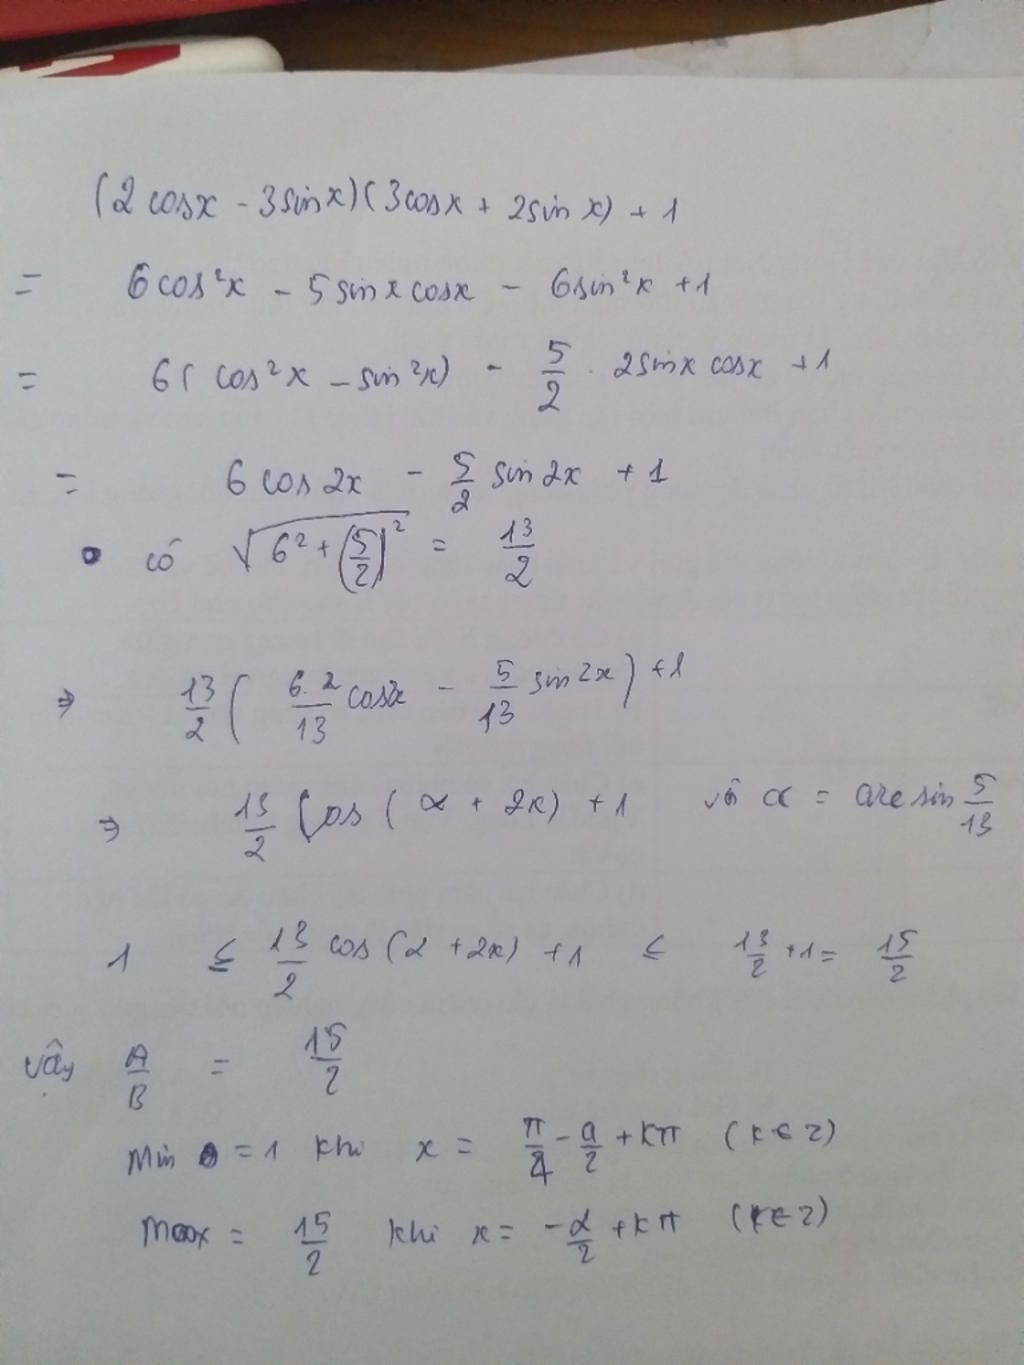 (2cosx - 3sinx)(3cosx + 2sinx) + 1
= 6cos²x - 5sinxcosx - 6sin²x + 1
= 6(cos²x - sin²x) - 5/2 . 2sinxcosx + 1
= 6cos2x - 5/2 sin2x + 1
• có √(6² + (5/2)²) = 13/2
⇒ 13/2 ( 6.2/13 cos2x - 5/13 sin2x) + 1
⇒ 13/2 Cos(α + 2x) + 1 với α = arcsin 5/13
1 ≤ 13/2 cos(2 + 2x) + 1 ≤ 13/2 + 1 = 15/2
vậy A/B = 15/2
Min = 1 khi x = π/4 - a/2 + kπ (k ∈ Z)
Max = 15/2 khi x = -α/2 + kπ (k ∈ Z)